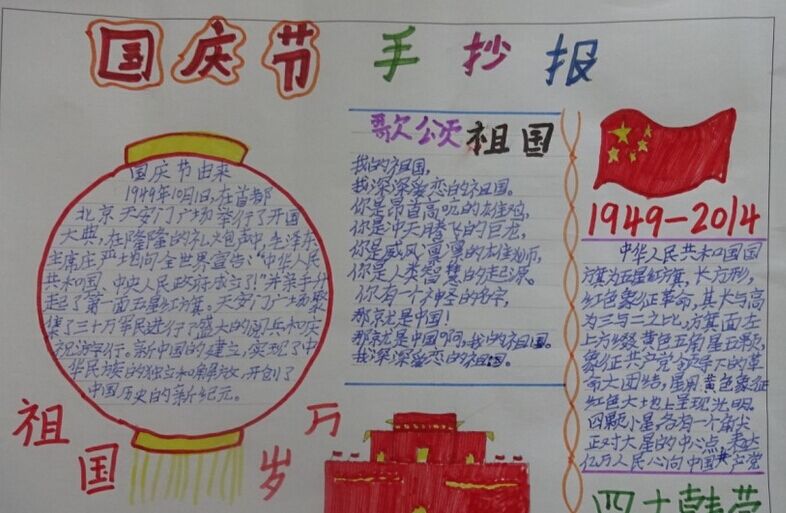 国庆节 手抄报
国庆节由来
1949年10月1日,在首都
北京天安门广场举行了开国
大典,在隆隆的礼炮声中,毛泽东
主席庄严地向全世界宣告:“中华人民
共和国、中央人民政府成立了!”并亲手升
起了第一面五星红旗。天安门广场聚
集了三十万军民进行了盛大的阅兵和庆
祝游行。新中国的建立,实现了中
华民族的独立和解放,开创了
中国历史的新纪元。
祖国万岁
歌颂祖国
我的祖国,
我深深爱恋的祖国。
你是昂首高吭的雄鸡,
你是冲天腾飞的巨龙,
你是威风凛凛的雄狮,
你是人类智慧的起源。
你有一个神圣的名字,
那就是中国!
那就是中国啊,我的祖国。
我深深爱恋的祖国。
1949-2014
中华人民共和国国
旗为五星红旗,长方形,
红色象征革命,其长与高
为三与二之比,旗面左
上方缀黄色五角星五颗,
象征共产党领导下的革
命大团结,星用黄色象征
红色大地上呈现光明。
四颗小星各有一个角尖
正对大星的中心点,表达
亿万人民心向中国共产党